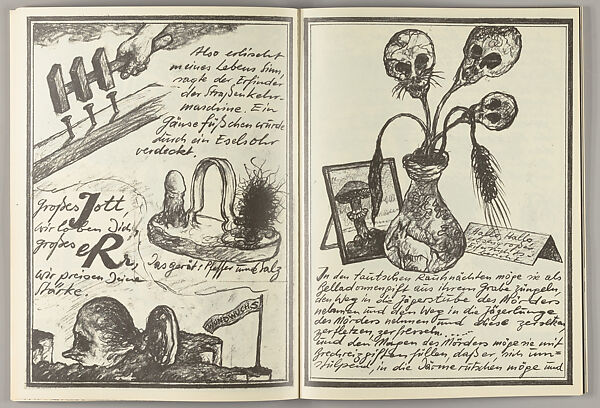 Also erlischt
meines Lebens Sinn,
sagte der Erfinder
der Straßenkehr-
maschine. Ein
Gänsefüßchen wurde
durch ein Eselsohr
verdeckt.
Großes Jott
wir loben Dich,
großes eRr,
wir preisen Deine
Stärke.
Das gerät: Pfeffer und Salz
Hallo, Hallo,
In den teutschen Rauhnächten möge sie als
Belladonnengift aus ihrem Grabe züngeln,
den Weg in die Jägerstube des Mörders
nehmen und den Weg in die Jägerlunge
des Mörders nehmen und diese zersetzen
zerfetzen, zerfressen.....
und den Magen des Mörders möge sie mit
giften füllen, daß er, sich um-
stülpend, in die Därme rutschen möge und